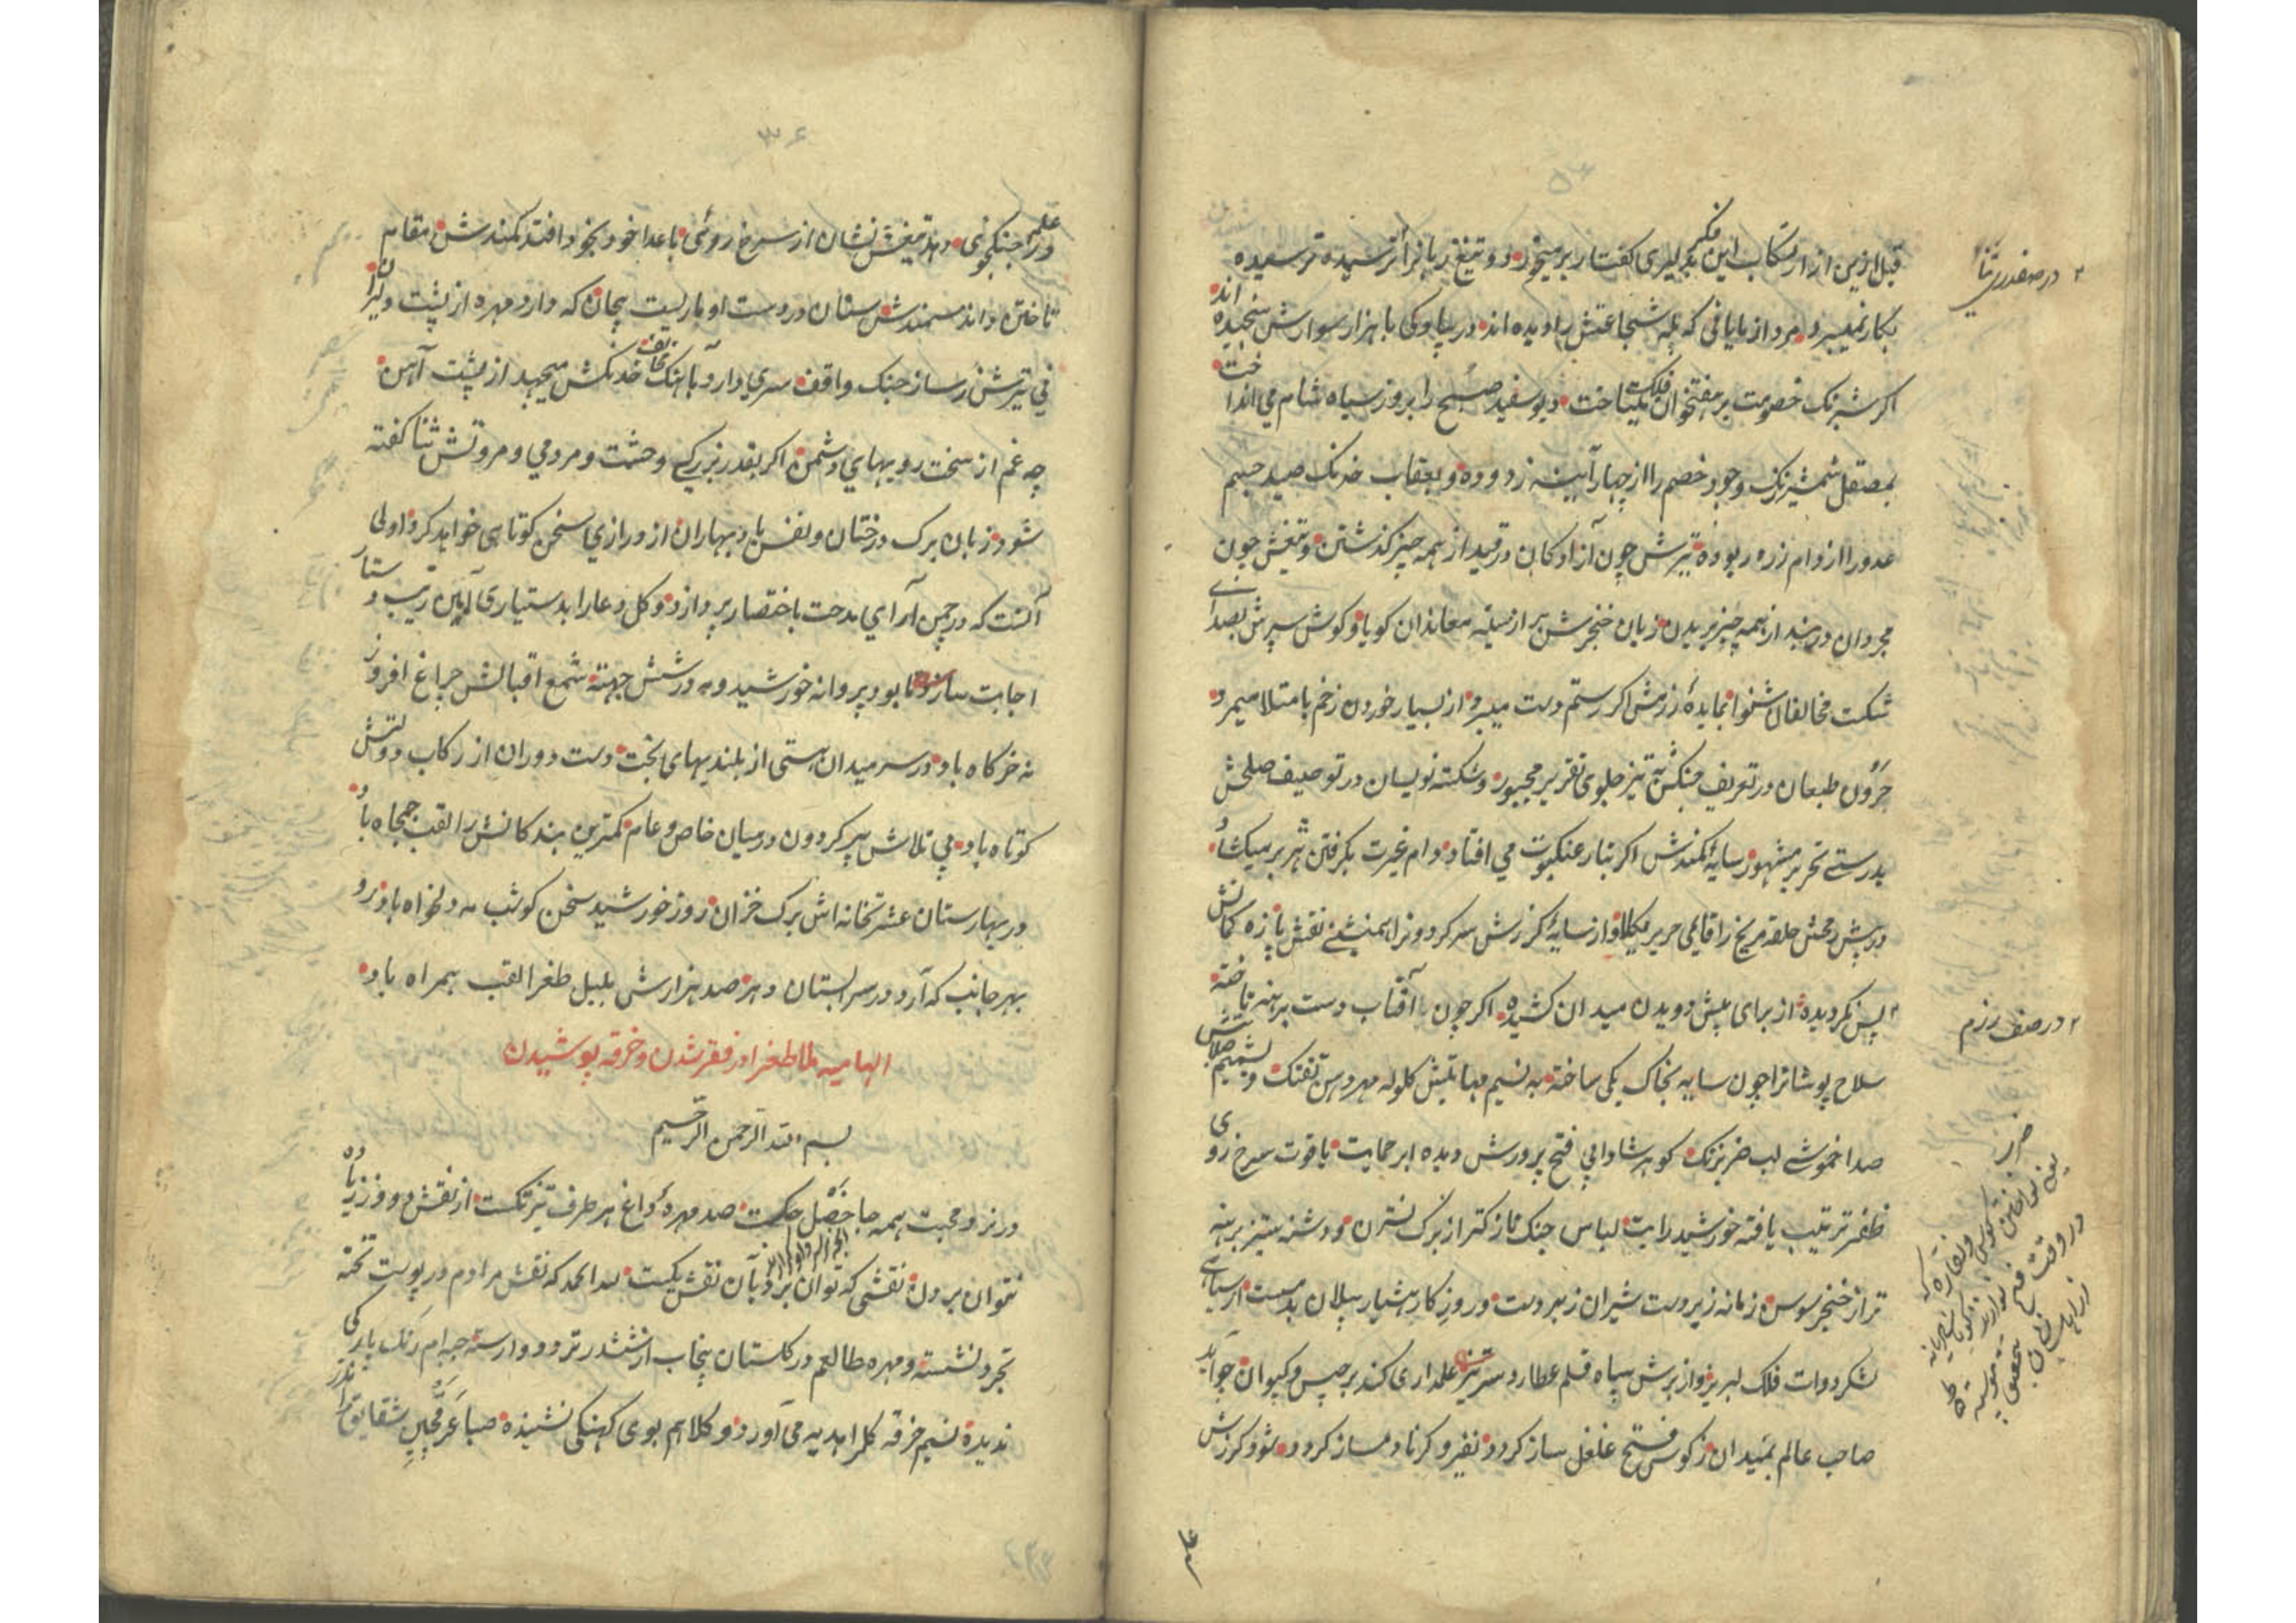 قبل ازین از ارتکاب این فکر بدلیری گفتار برمیخورد و تیغ زبانرا ترشیده ترسیده
بکار نمیبرد مرد ازمایانی که پله شجاعتش را دیده اند در پیاوکی با هزار سوارش سنجیده اند
اگر شبرنگ خصومت بر هفتخوان فلک میتاخت دیو سفید صبح را بروز سیاه شام می انداخت
بمصقل شمشیر زنگ وجود خصم را از چهار آینه زدوده و بعقاب خدنگ صید جسم
عدو را از دام زره ربوده تیرش چون آزادگان در قید از همه چیز گذشتن و تیغش چون
مجردان در بند از همه چیز بریدن زبان خنجرش بر از سینه معاندان گویا و گوش سپرش بصدای
شکست مخالفان شنوا نمایدهٔ رزمش اگر رستم دست میبرد از بسیار خوردن زخم بامتلا میمرد
حرون طبعان در تعریف جنگش به تیز جلوی تقریر مجبور و شکسته نویسان در توصیف صلحش
بدرستی تحریر مشهور سایهٔ کمندش اگر بتار عنکبوت می افتاد دام غیرت بگرفتن هژبر میکشاد
در پیش رمحش حلقه مریخ را قایمی حریر و از سایهٔ گرزش سر گردونرا همنشینی نقش پا زه کمانش
پس نگردیده از برای پیش دویدن میدان کشیده اگر چون آفتاب دست برهنه تاخته
سلاح پوشانرا چون سایه بخاک یکی ساخته به نسیم گلوله مهر دهن تفنگ و بشمیم صلابتش
صدا خموشی لب ضربزنگ گوهر شادابی فتح پرورش دیده ابر حمایت یاقوت سرخ روی
ظفر ترتیب یافته خورشید رایت لباس جنگ نازکتر از برگ نسترن و دشنه ستیز برهنه
تر از خنجر سوسن زمانه زبردست شیران زیردست و روز کار هشیار پیلان بدمست از سیاهی
لشکر دوات فلک لبریز و از برش سپاه قلم عطارد سر تیز علمداری کند برجیس و کیوان چو آید
صاحب عالم بمیدان ز کوس فتح غلغل ساز گردد نفیر و کرنا دمساز گردد شود گرزش
علم
۲ در صفدری تنها
۲ در صف رزم
علم را جنگجوئی دهد تیغش نشان از سرخ روئی باعدا خود بخود افتد کمندش مقام
تاختن داند سمندش سنان در دست او ماریست پیچان که دارد مهره از پشت دلیران
نی تیرش ز ساز جنگ واقف سری دارد بآهنگ مخالف خدنگش میجهد از پشت آهن
چه غم از سخت روییهای دشمن اگر بقدر بزرگی و حشمت و مردمی و مروتش ثنا گفته
شود زبان برگ درختان و نفس باد بهاران از درازی سخن کوتاهی خواهد کرد اولی
آنست که در چمن آرای مدحت باختصار پردازد و گل دعا را بدستیاری آمین زیب دستار
اجابت سازد تا بود پروانه خورشید و مه در شش جهته شمع اقبالش چراغ افروز
نه خرگاه باد در سر میدان هستی از بلندیهای بخت دست دوران از رکاب دولتش
کوتاه باد پی تلاش پیر گردون در میان خاص و عام کمترین بندگانش را لقب جمجاه باد
در بهارستان عشرتخانه اش برگ خزان روز خورشید سخن گو شب مه دلخواه باد رو
بهر جانب که آرد در سرابستان دهر صد هزارش بلبل طغرا لقب همراه باد
الهامیه ملا طغرا در فقر شدن و خرقه پوشیدن
بسم الله الرحمن الرحیم
در نرد محبت همه جا خصل حکست صد مهرهٔ داغ هر طرف تیزتکست از نقش دو فرد زیاده
نتوان بردن نقشی که توان برد بآن نقش یکیست لله الحمد که نقش مرادم در پوست تخته
تجرد نشسته و مهره طالعم در گلستان پنجاب از ششدر تردد وارسته جبه ام رنگ بادگی
ندیده نسیم خرقه گلم هدیه می آورد و کلاهم بوی کهنگی نشنیده صبا عرقچین شقایق